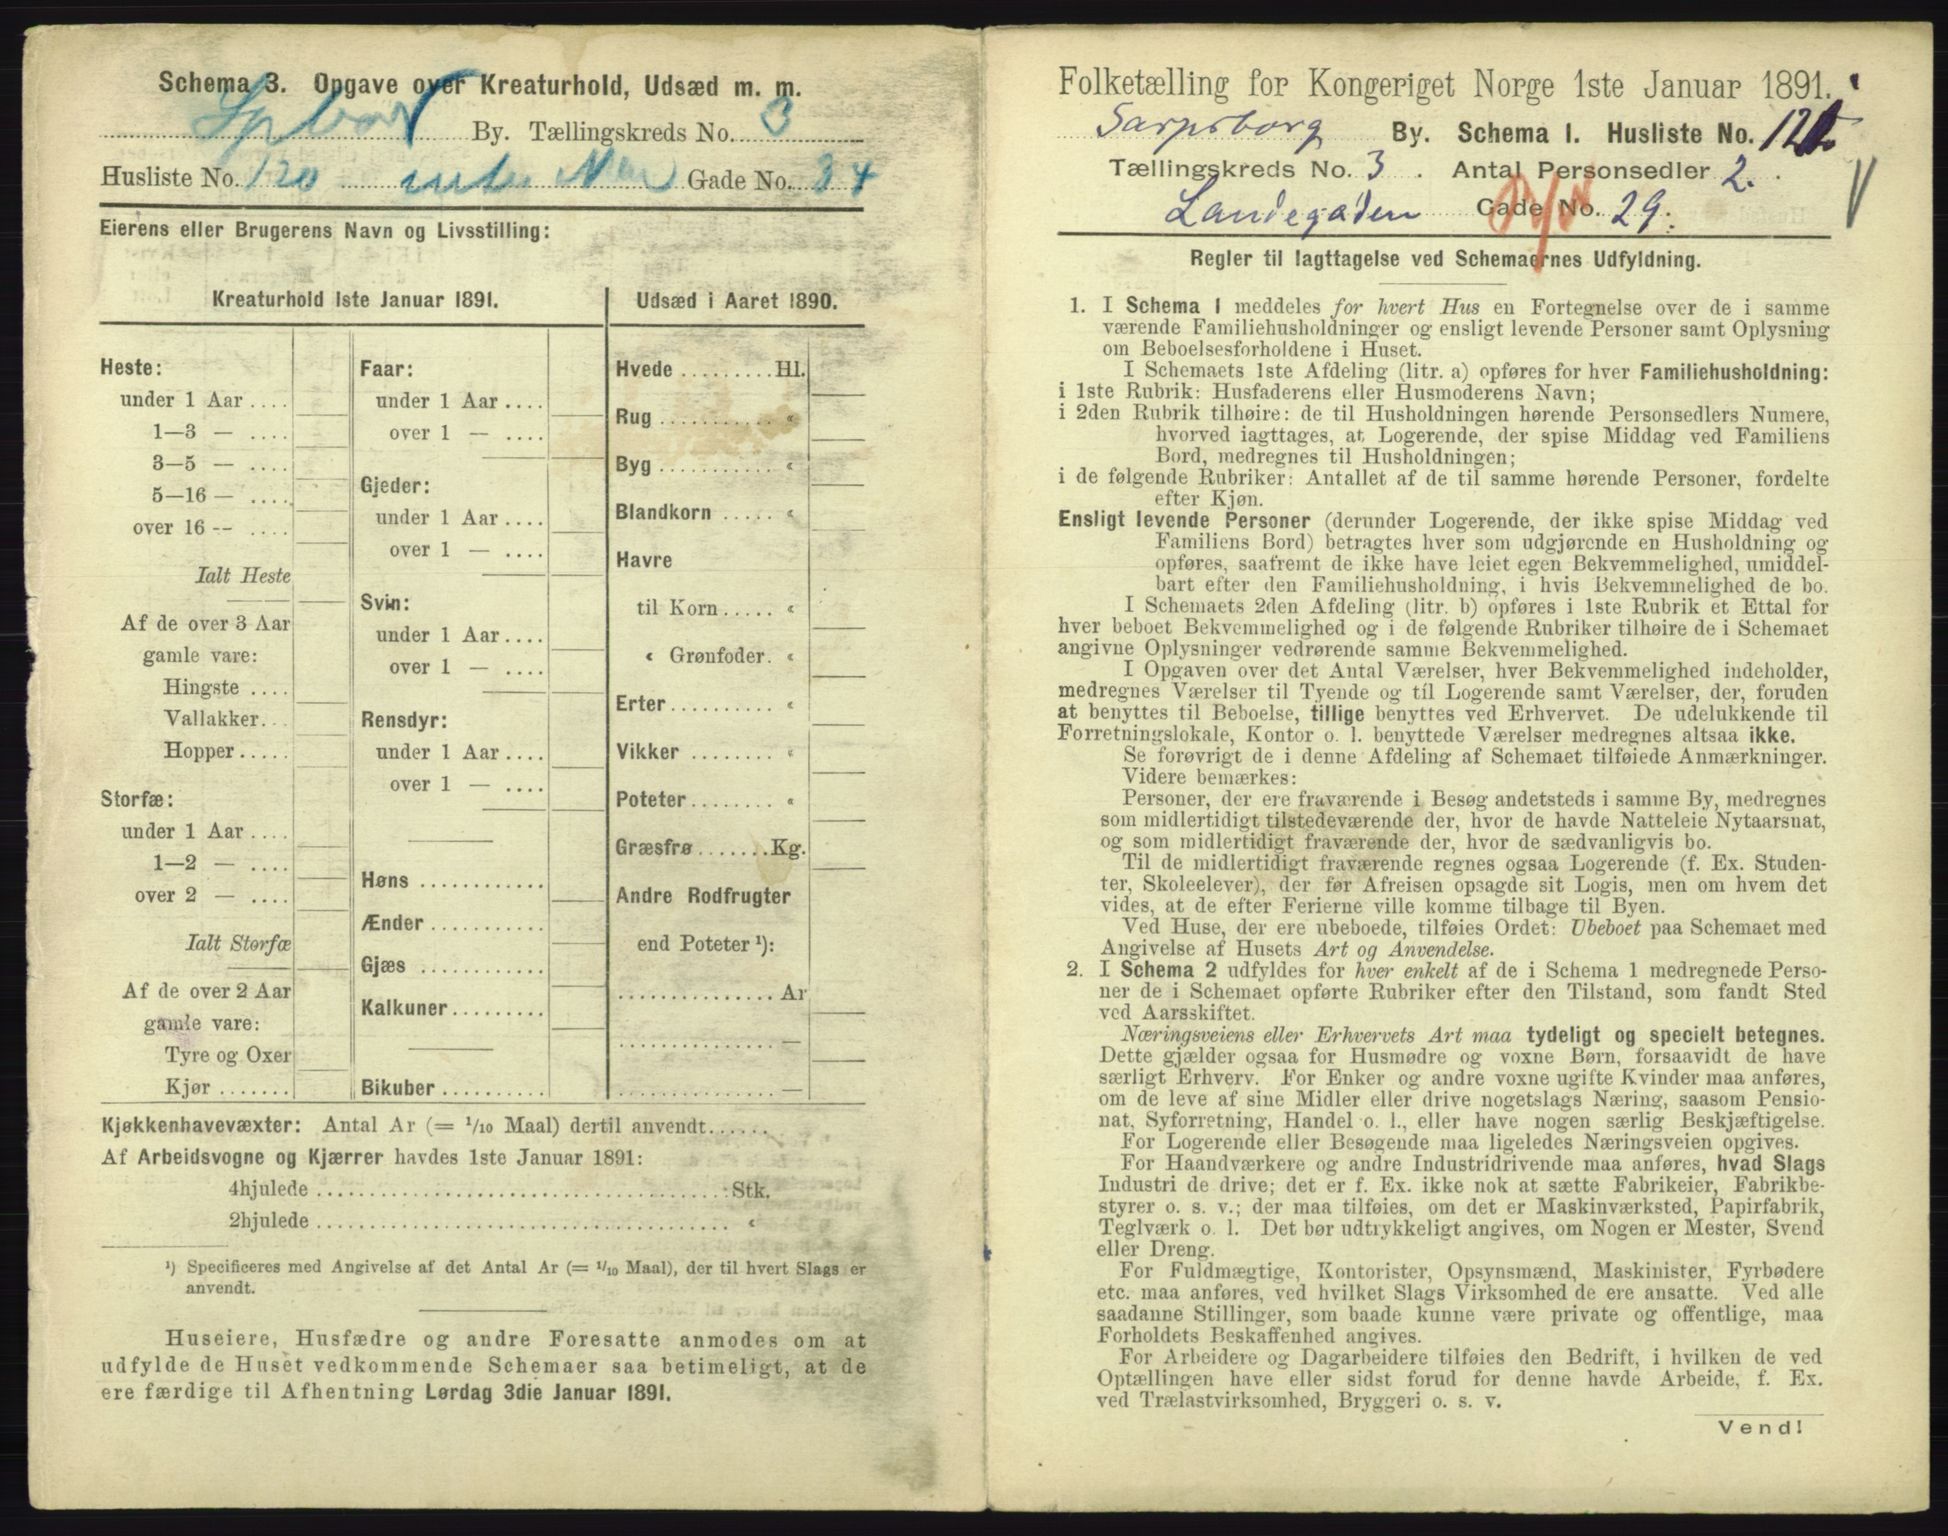 Schema 3. Opgave over Kreaturhold, Udsæd m. m.
By. Tællingskreds No. 3
Husliste No. 120 Gade No. 34
Eierens eller Brugerens Navn og Livsstilling:
Kreaturhold 1ste Januar 1891.
Heste:
under 1 Aar ....
1—3 — ....
3—5 — ....
5—16 — ....
over 16 -- ....
Ialt Heste
Af de over 3 Aar
gamle vare:
Hingste ....
Vallakker...
Hopper.....
Storfæ:
under 1 Aar ....
1—2 — ....
over 2 — ....
Ialt Storfæ
Af de over 2 Aar
gamle vare:
Tyre og Oxer
Kjør .......
Faar:
under 1 Aar ....
over 1 — ....
Gjeder:
under 1 Aar ....
over 1 — ....
Svin:
under 1 Aar ....
over 1 — ....
Rensdyr:
under 1 Aar ....
over 1 — ....
Høns ............
Ænder ...........
Gjæs ............
Kalkuner.........
Bikuber ..........
Udsæd i Aaret 1890.
Hvede .........Hl.
Rug ........... «
Byg ........... «
Blandkorn ..... «
Havre
til Korn ..... «
« Grønfoder. «
Erter.......... «
Vikker ........ «
Poteter........ «
Græsfrø .......Kg.
Andre Rodfrugter
end Poteter ¹):
............... Ar
............... —
............... —
Kjøkkenhavevæxter: Antal Ar (= 1/10 Maal) dertil anvendt......
Af Arbeidsvogne og Kjærrer havdes 1ste Januar 1891:
4hjulede ........................................Stk.
2hjulede ........................................ «
¹) Specificeres med Angivelse af det Antal Ar (= 1/10 Maal), der til hvert Slags er
anvendt.
Huseiere, Husfædre og andre Foresatte anmodes om at
udfylde de Huset vedkommende Schemaer saa betimeligt, at de
ere færdige til Afhentning Lørdag 3die Januar 1891.
Folketælling for Kongeriget Norge 1ste Januar 1891.
Sarpsborg By. Schema 1. Husliste No.
Tællingskreds No. 3. Antal Personsedler 2.
Landegaden Gade No. 29.
Regler til Iagttagelse ved Schemaernes Udfyldning.
1. I Schema 1 meddeles for hvert Hus en Fortegnelse over de i samme
værende Familiehusholdninger og ensligt levende Personer samt Oplysning
om Beboelsesforholdene i Huset.
I Schemaets 1ste Afdeling (litr. a) opføres for hver Familiehusholdning:
i 1ste Rubrik: Husfaderens eller Husmoderens Navn;
i 2den Rubrik tilhøire: de til Husholdningen hørende Personsedlers Numere,
hvorved iagttages, at Logerende, der spise Middag ved Familiens
Bord, medregnes til Husholdningen;
i de følgende Rubriker: Antallet af de til samme hørende Personer, fordelte
efter Kjøn.
Ensligt levende Personer (derunder Logerende, der ikke spise Middag ved
Familiens Bord) betragtes hver som udgjørende en Husholdning og
opføres, saafremt de ikke have leiet egen Bekvemmelighed, umiddel-
bart efter den Familiehusholdning, i hvis Bekvemmelighed de bo.
I Schemaets 2den Afdeling (litr. b) opføres i 1ste Rubrik et Ettal for
hver beboet Bekvemmelighed og i de følgende Rubriker tilhøire de i Schemaet
angivne Oplysninger vedrørende samme Bekvemmelighed.
I Opgaven over det Antal Værelser, hver Bekvemmelighed indeholder,
medregnes Værelser til Tyende og til Logerende samt Værelser, der, foruden
at benyttes til Beboelse, tillige benyttes ved Erhvervet. De udelukkende til
Forretningslokale, Kontor o. l. benyttede Værelser medregnes altsaa ikke.
Se forøvrigt de i denne Afdeling af Schemaet tilføiede Anmærkninger.
Videre bemærkes:
Personer, der ere fraværende i Besøg andetsteds i samme By, medregnes
som midlertidigt tilstedeværende der, hvor de havde Natteleie Nytaarsnat,
og som midlertidigt fraværende der, hvor de sædvanligvis bo.
Til de midlertidigt fraværende regnes ogsaa Logerende (f. Ex. Studen-
ter, Skoleelever), der før Afreisen opsagde sit Logis, men om hvem det
vides, at de efter Ferierne ville komme tilbage til Byen.
Ved Huse, der ere ubeboede, tilføies Ordet: Ubeboet paa Schemaet med
Angivelse af Husets Art og Anvendelse.
2. I Schema 2 udfyldes for hver enkelt af de i Schema 1 medregnede Perso-
ner de i Schemaet opførte Rubriker efter den Tilstand, som fandt Sted
ved Aarsskiftet.
Næringsveiens eller Erhvervets Art maa tydeligt og specielt betegnes.
Dette gjælder ogsaa for Husmødre og voxne Børn, forsaavidt de have
særligt Erhverv. For Enker og andre voxne ugifte Kvinder maa anføres,
om de leve af sine Midler eller drive nogetslags Næring, saasom Pensio-
nat, Syforretning, Handel o. l., eller have nogen særlig Beskjæftigelse.
For Logerende eller Besøgende maa ligeledes Næringsveien opgives.
For Haandværkere og andre Industridrivende maa anføres, hvad Slags
Industri de drive; det er f. Ex. ikke nok at sætte Fabrikeier, Fabrikbe-
styrer o. s. v.; der maa tilføies, om det er Maskinværksted, Papirfabrik,
Teglværk o. l. Det bør udtrykkeligt angives, om Nogen er Mester, Svend
eller Dreng.
For Fuldmægtige, Kontorister, Opsynsmænd, Maskinister, Fyrbødere
etc. maa anføres, ved hvilket Slags Virksomhed de ere ansatte. Ved alle
saadanne Stillinger, som baade kunne være private og offentlige, maa
Forholdets Beskaffenhed angives.
For Arbeidere og Dagarbeidere tilføies den Bedrift, i hvilken de ved
Optællingen have eller sidst forud for denne havde Arbeide, f. Ex.
ved Trælastvirksomhed, Bryggeri o. s. v.
Vend!